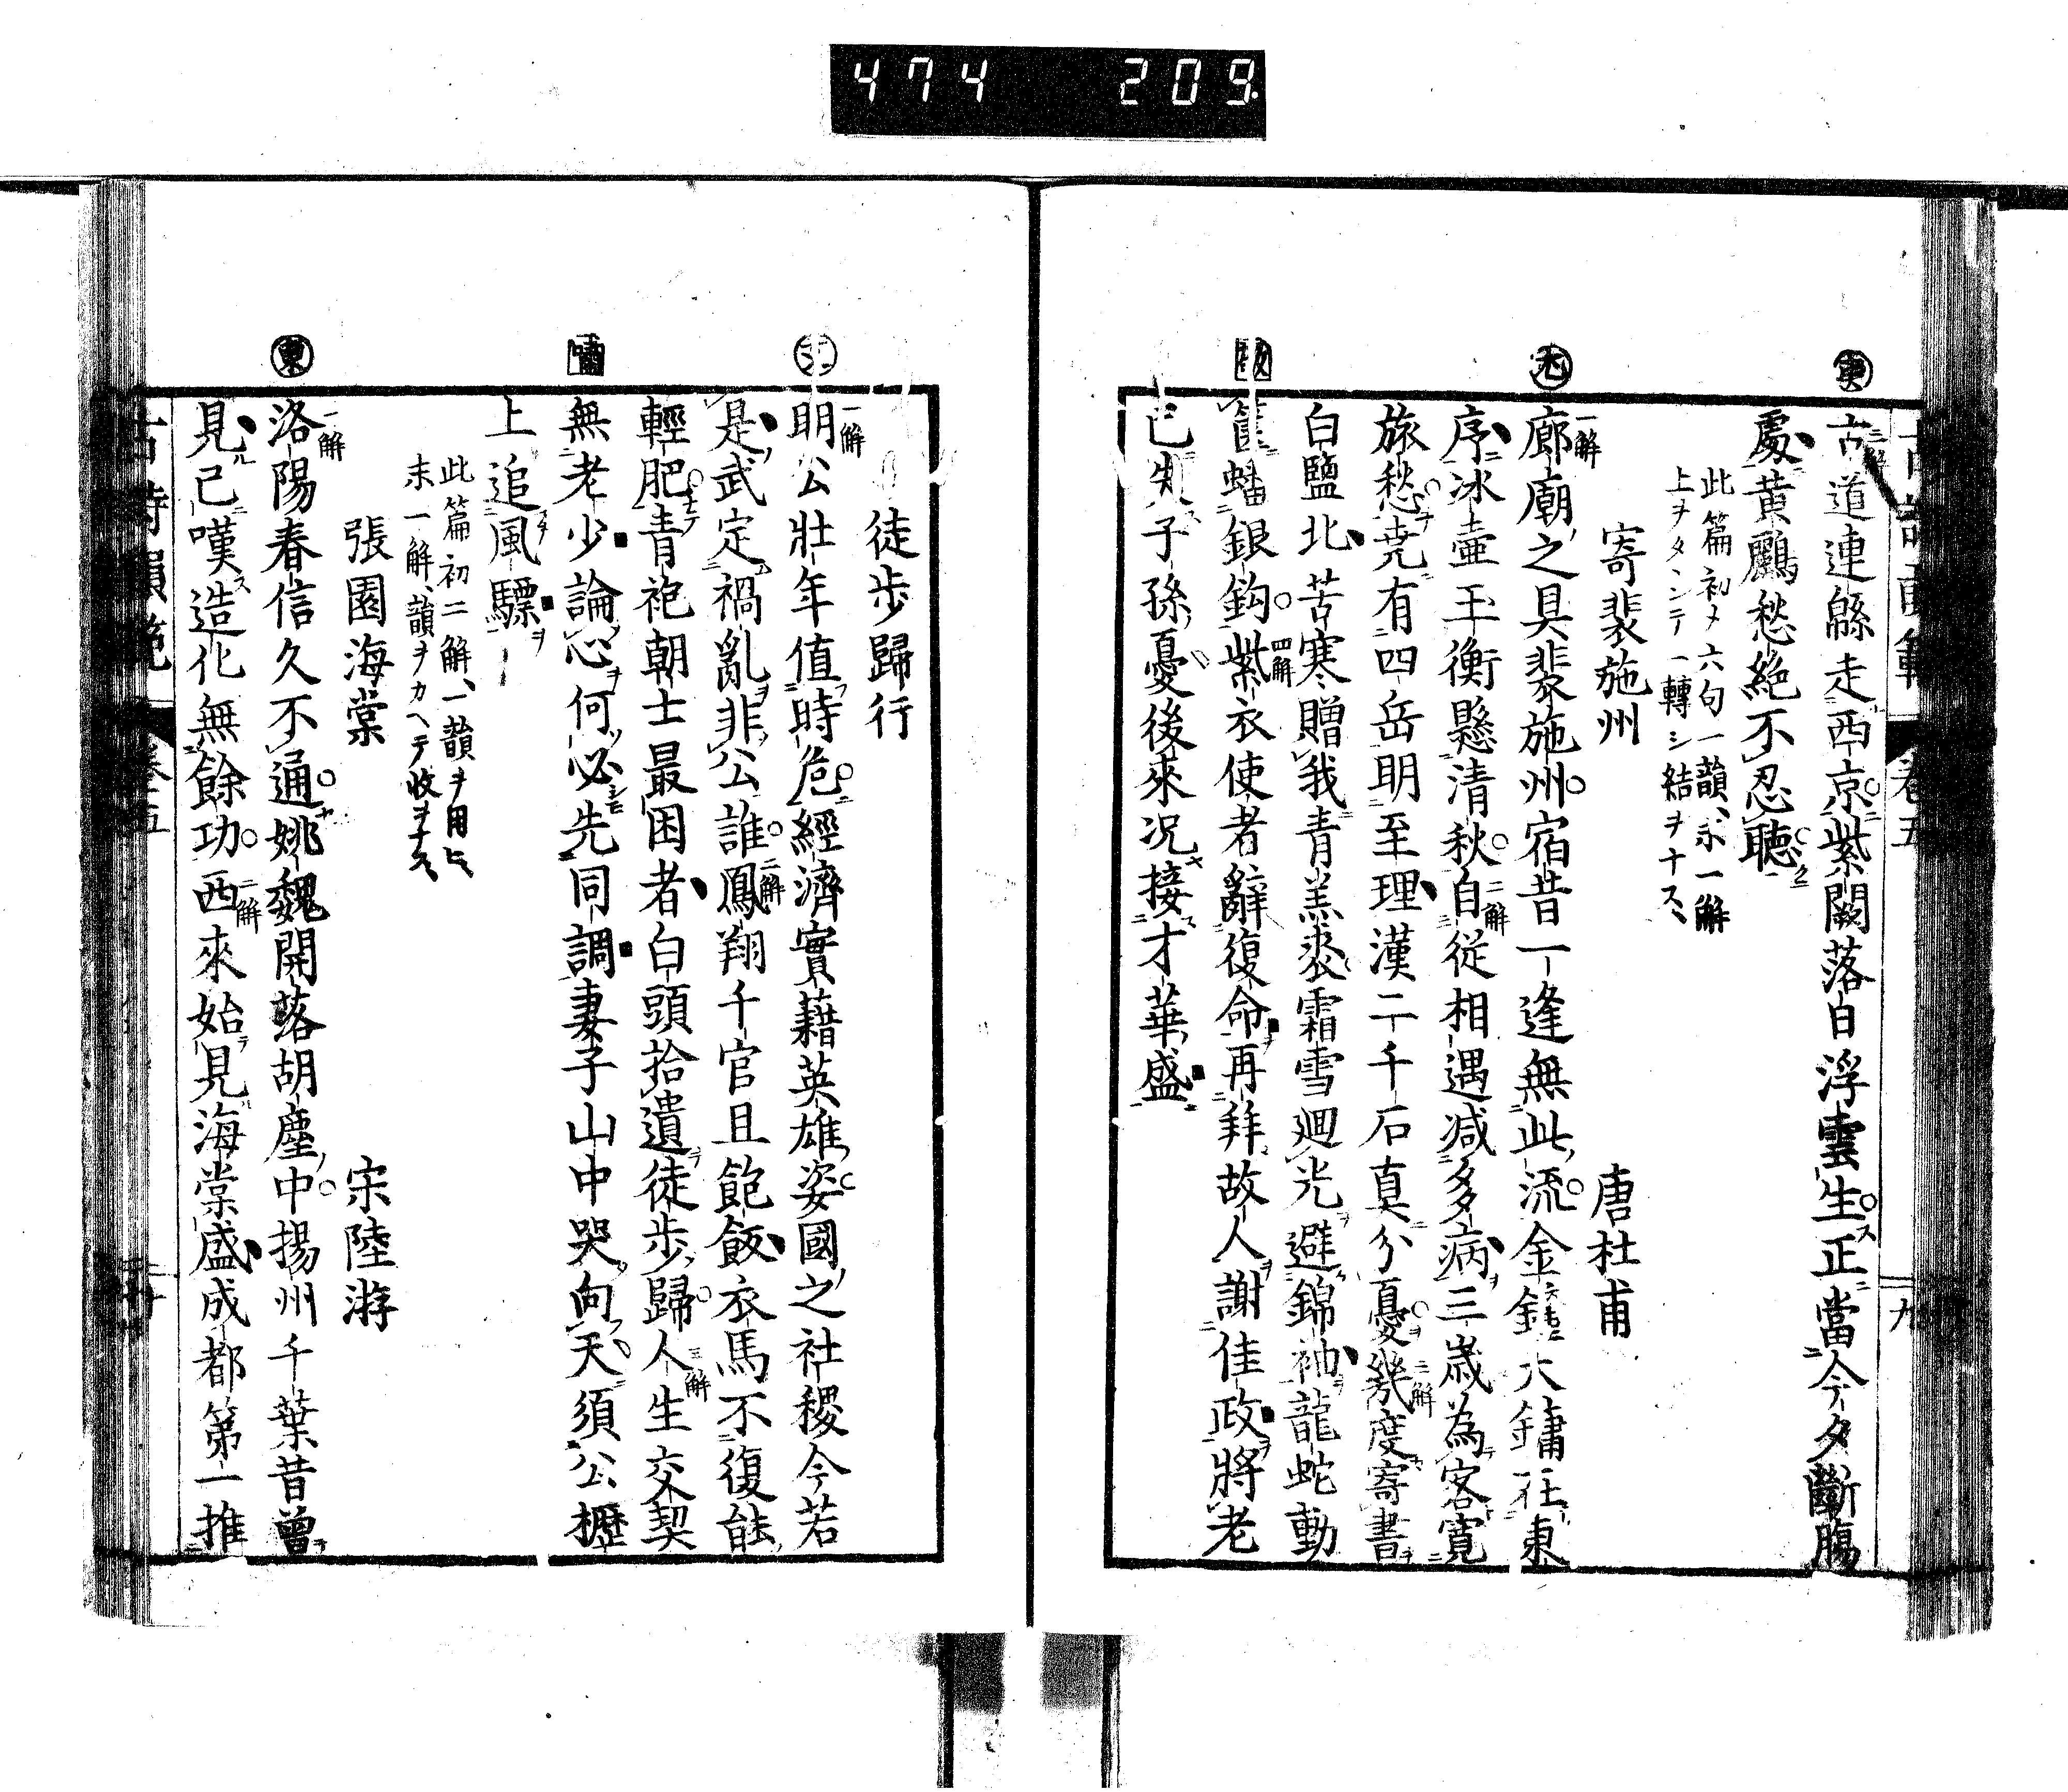 474 209
古詩韻範 卷五 九
庚
古道連緜走西京紫闕落日浮雲生正當今夕斷膓
處黃鸝愁絶不忍聽
此篇初メ六句一韻、末一解
上ヲタンテ一轉シ結ヲナス、
寄裴施州 唐杜甫
尤
一解
廊廟之具裴施州宿昔一逢無此流金鐘大鏞在東
序冰壷玉衡懸清秋二解自従相遇减多病三歲為客寛
旅愁尭有四岳明至理漢二千石真分憂三解幾度寄書
白鹽北苦寒贈我青羔裘霜雪廻光避錦袖龍蛇動
篋蟠銀鈎四解紫衣使者辭復命再拜故人謝佳政將老
已失子孫憂後來况接才華盛
徒歩歸行
支
一解
明公壯年值時危經濟實藉英雄姿國之社稷今若
是武定禍亂非公誰二解鳳翔千官且飽飯衣馬不復能
輕肥青袍朝士最困者白頭拾遺徒歩歸三解人生交契
嘯
無老少論心何必先同調妻子山中哭向天須公櫪
上追風驃
此篇初二解、一韻ヲ用ヒ、
末一解、韻ヲカヘテ收ヲナス、
張園海棠 宋陸游
東
一解
洛陽春信久不通姚魏開落胡塵中揚州千葉昔曾
見已嘆造化無餘功二解西來始見海棠盛成都第一推
古詩韻範 卷五